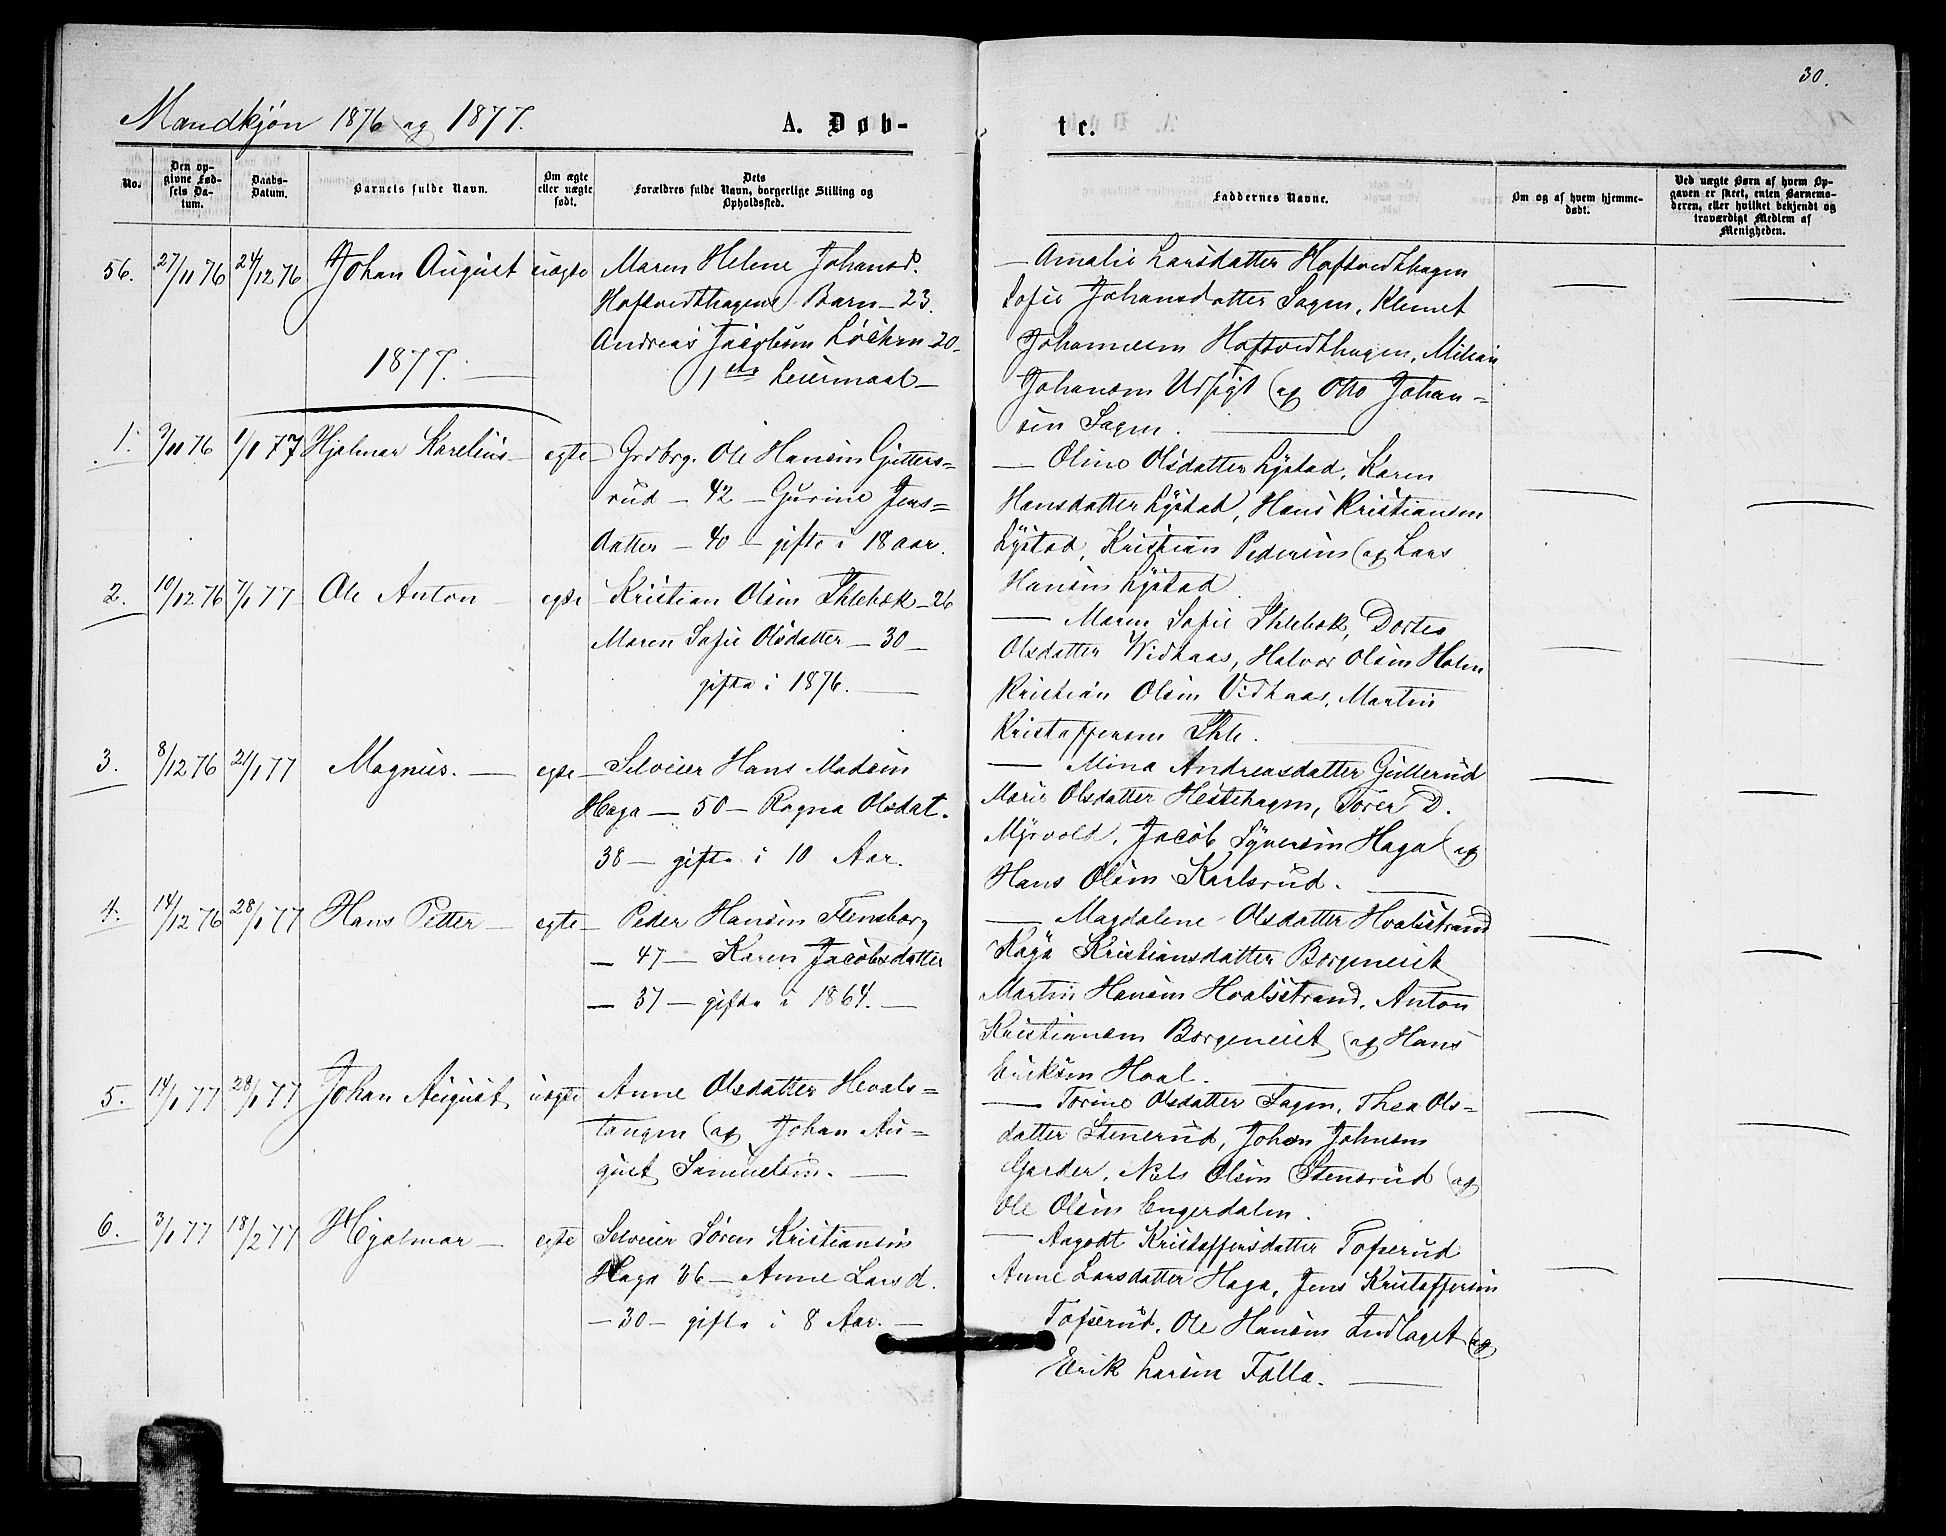 30.
Mandkjøn 1876 og 1877.
A. Døb-
te.
No.
Den op-
givne Fød-
sels Da-
tum.
Daabs-
Datum.
Barnets fulde Navn.
Om ægte
eller uægte
født.
Dets
Forældres fulde Navn, borgerlige Stilling og
Opholdssted.
Faddernes Navne.
Om og af hvem hjemme-
døbt.
Ved uægte Børn af hvem Op-
gaven er skeet, enten Barnemo-
deren, eller hvilket bekjendt og
troværdigt Medlem af
Menigheden.
56. 27/11 76 24/12 76 Johan August uægte
Maren Helene Johansd.
Hoftvedthagens Barn - 23.
Andreas Jacobsen Løken - 20 -
1ste Leiermaal -
- Amalie Larsdatter Hoftvedthagen
Sofie Johansdatter Sagen, Klemet
Johannesen Hoftvedthagen,
Johansen Udsigt og Otto Johan-
sen Sagen.
1877. -
1. 9/11 76 1/1 77 Hjalmar Karelius - egte -
Grdbrg. Ole Hansen Gutters-
rud - 42 - Gurine Jens-
datter - 40 - gifte i 18 aar.
- Oline Olsdatter Lystad, Karen
Hansdatter Lystad, Hans Kristiansen
Lystad, Kristian Pedersen og Lars
Hansen Lystad.
2. 10/12 76 7/1 77 Ole Anton - egte
- Kristian Olsen Ihlebæk - 26
Maren Sofie Olsdatter - 30 -
gifte i 1876. -
- Maren Sofie Ihlebæk, Dortea
Olsdatter Widtaas, Halvor Olsen Holm
Kristian Olsen Vidtaas, Martin
Kristoffersen Ihle.
3. 8/12 76 21/1 77 Magnus. - egte -
Selveier Hans Madsen
Haga - 50 - Ragna Olsdat.
38 - gifte i 10 Aar.
- Mina Andreasdatter Gullerud
Marie Olsdatter Hestehagen, Torer D.
Myrvold, Jacob Syversen Haga og
Hans Olsen Karlsrud. -
4. 14/12 76 28/1 77 Hans Petter - egte -
Peder Hansen Flensborg
- 47 - Karen Jacobsdatter
- 37 - gifte i 1864. -
- Magdalene Olsdatter Hvalsstrand
Kaja Kristiansdatter Borgeneiet
Martin Hansen Hvalsstrand, Anton
Kristiansen Borgeneiet og Hans
Eriksen Hval.
5. 14/1 77 28/1 77 Johan August uægte
Anne Olsdatter Hvals-
tangen og Johan Au-
gust Samuelsen. -
- Torine Olsdatter Sagen, Thea Ols-
datter Stenerud, Johan Johnsen
Garder, Nils Olsen Stenerud og
Ole Olsen Engerdalen.
6. 3/1 77 18/2 77 Hjalmar - egte
Selveier Søren Kristiansen
Haga 36 - Anne Larsd.
- 30 - gifte i 8 Aar. -
- Aagodt Kristoffersdatter Tofserud
Anne Larsdatter Haga, Jens Kristoffersen
Tofserud, Ole Hansen Indlaget og
Erik Larsen Falla. -